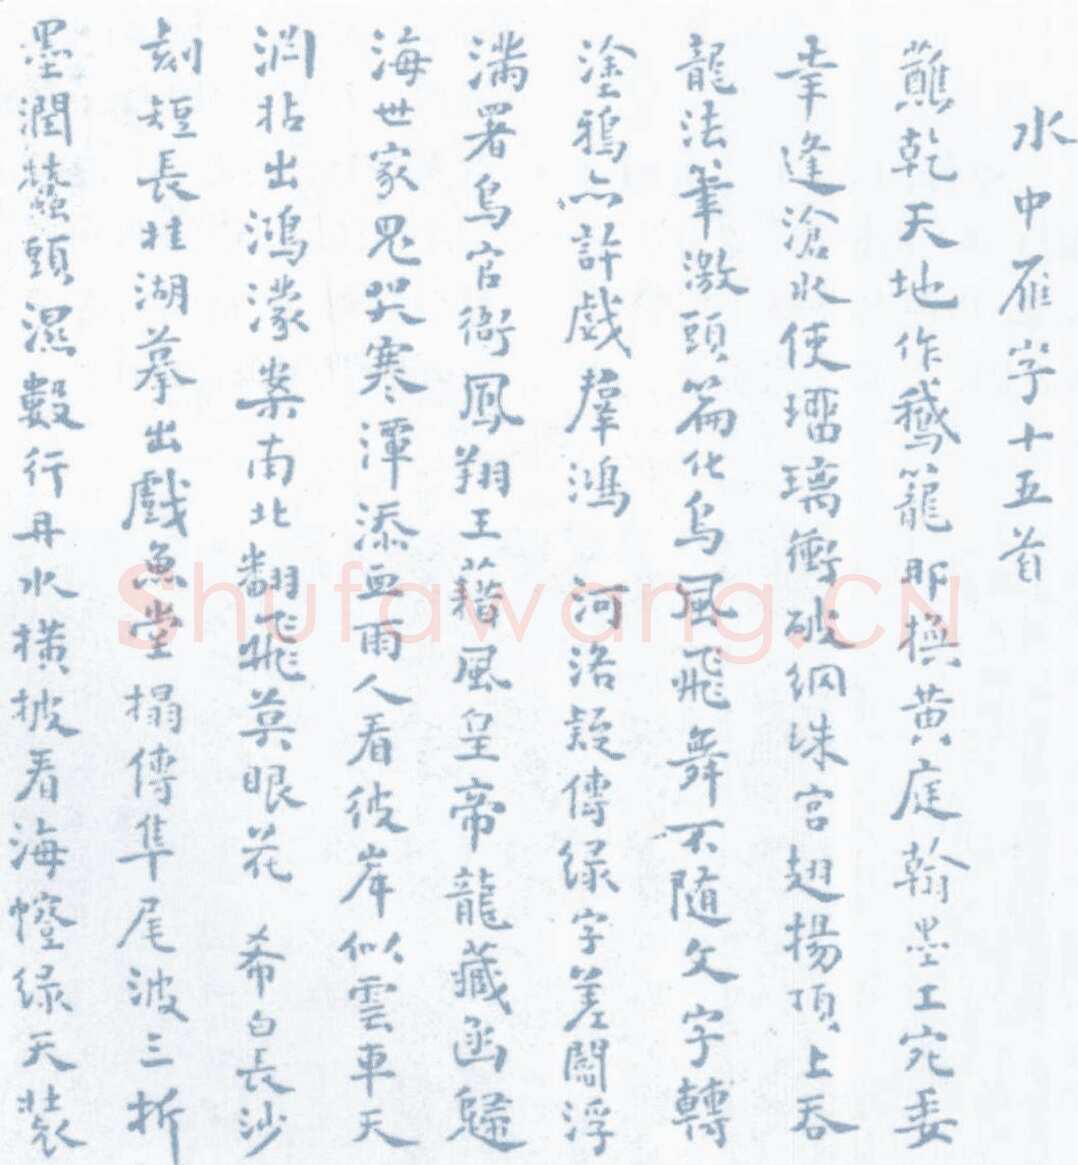 水中雁字十五首
蘸乾天地作鵝籠那橅黄庭翰墨工宛委
幸逢滄水使璢璃衝破網珠宮翅揚頂上吞
龍法筆激頭篇化鳥風飛舞不隨文字轉
塗鴉亦許戲羣鴻 河洛疑傳緑字差閻浮
滿署鳥官銜鳳翔王藉風皇帝龍藏函歸
海世家鬼哭寒潭添血雨人看彼岸似雲車天
淵拈出鴻濛案南北翻飛莫眼花 希白長沙
刻短長挂湖摹出戲魚堂搨傳隼尾波三折
墨潤蠶頭濕數行丹水橫披看海幢緑天裝
Shufawang.CN